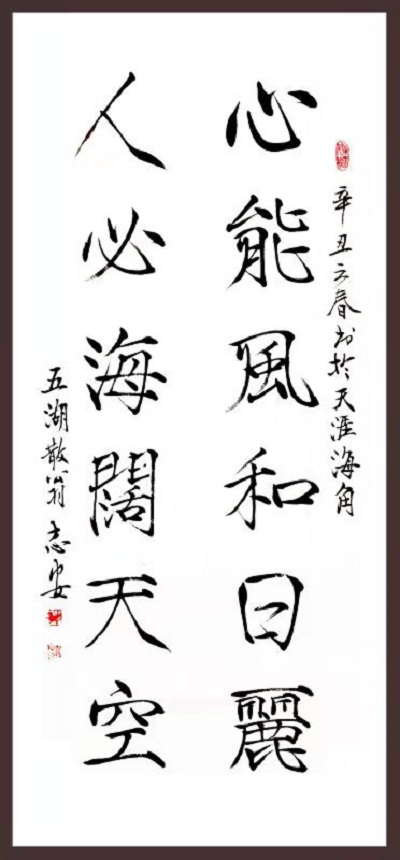 辛丑之春书於天涯海角
心能風和日麗
人必海闊天空
五湖散翁志安